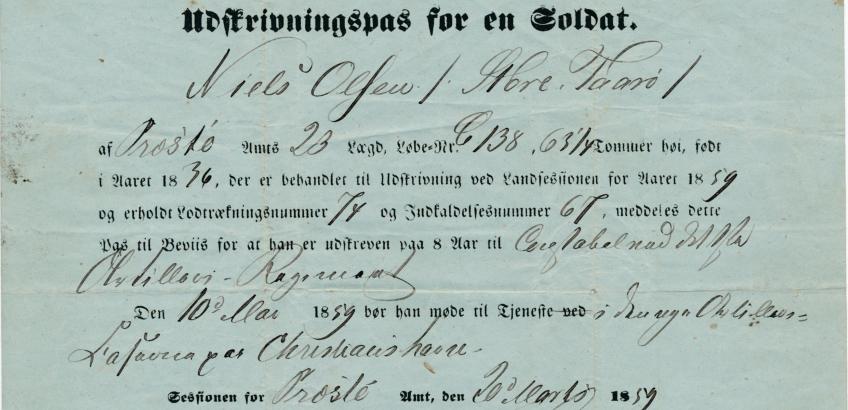 Udskrivningspas for en Soldat.
Niels Olsen /. St Øre. Taarø /
af Præstø Amts 23 Lægd, Løbe=Nr. C 138, 63 1/4 Tommer høi, født
i Aaret 1836, der er behandlet til Udskrivning ved Landsessionen for Aaret 1859
og erholdt Lodtrækningsnummer 74 og Indkaldelsesnummer 67, meddeles dette
Pas til Beviis for at han er udskreven paa 8 Aar til Constabel ved det
Artilleri-Regiment
Den 10d Mai 1859 bør han møde til Tjeneste ved i den nye Artilleri=
Caserne paa Christianshavn-
Sessionen for Præstø Amt, den 20d Marts 1859